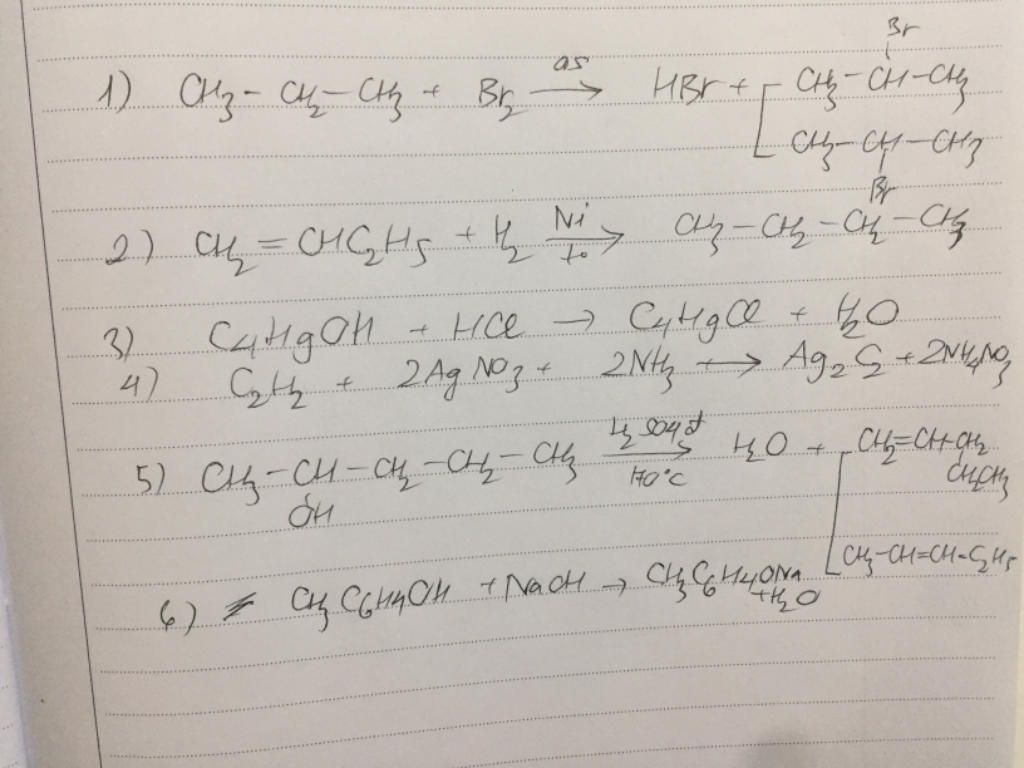 1) CH3 - CH2 - CH3 + Br2 as → HBr + CH3 - CH - CH3
Br
CH3 - CH - CH3
Br
2) CH2 = CHC2H5 + H2 Ni → to CH3 - CH2 - CH2 - CH3
3) C4H9OH + HCl → C4H9Cl + H2O
4) C2H2 + 2AgNO3 + 2NH3 → Ag2C2 + 2NH4NO3
5) CH3 - CH - CH2 - CH2 - CH3 H2SO4 đ → 170°C H2O + CH2=CH-CH2
CH2CH3
OH
CH3-CH=CH-C2H5
6) CH3C6H4OH + NaOH → CH3C6H4ONa
+ H2O